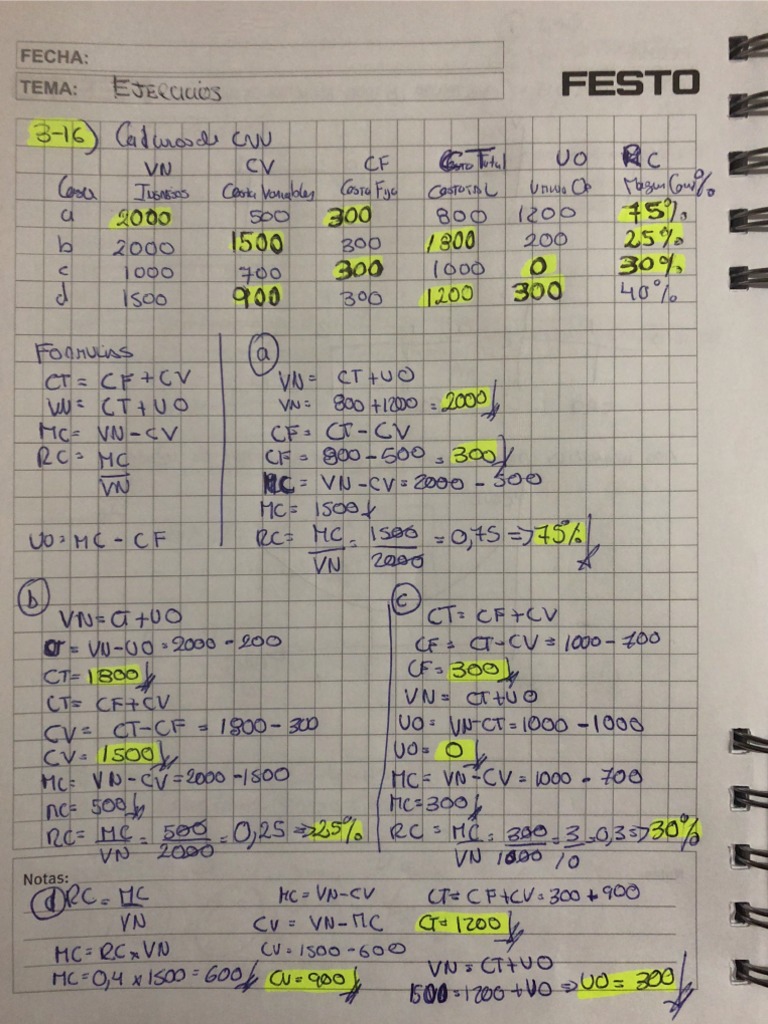 FECHA:
TEMA: EJERCICIOS
FESTO
3-16)
VN CV CF Costo Total UO RC
Ingresos Costos Variables Costo Fijo COSTO TOTAL
a 2000 500 300 800 1200 75%
b 2000 1500 300 1800 200 25%
c 1000 700 300 1000 0 30%
d 1500 900 300 1200 300 40%
FORMULAS
CT = CF + CV
VN = CT + UO
MC = VN - CV
RC = MC
VN
UO = MC - CF
a
VN = CT + UO
VN = 800 + 1200 = 2000
CF = CT - CV
CF = 800 - 500 = 300
RC = VN - CV = 2000 - 500
MC = 1500
RC = MC = 1500 = 0,75 => 75%
VN 2000
b
VN = CT + UO
CT = VN - UO = 2000 - 200
CT = 1800
CT = CF + CV
CV = CT - CF = 1800 - 300
CV = 1500
MC = VN - CV = 2000 - 1500
MC = 500
RC = MC = 500 = 0,25 => 25%
VN 2000
c
CT = CF + CV
CF = CT - CV = 1000 - 700
CF = 300
VN = CT + UO
UO = VN - CT = 1000 - 1000
UO = 0
MC = VN - CV = 1000 - 700
MC = 300
RC = MC = 300 = 3 = 0,3 => 30%
VN 1000 10
Notas:
d RC = MC
VN
MC = RC x VN
MC = 0,4 x 1500 = 600
MC = VN - CV
CV = VN - MC
CV = 1500 - 600
CV = 900
CT = CF + CV = 300 + 900
CT = 1200
VN = CT + UO
1500 = 1200 + UO => UO = 300